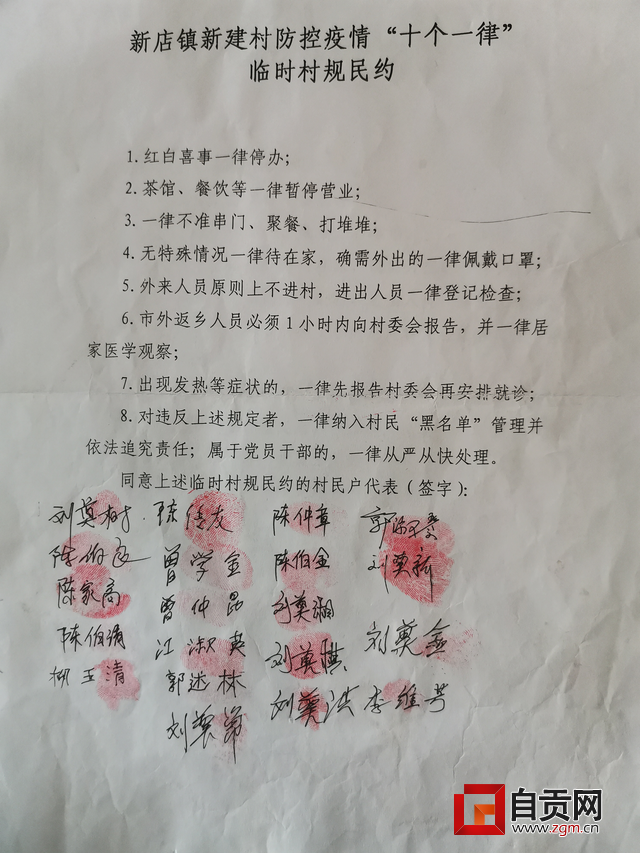 新店镇新建村防控疫情“十个一律”
临时村规民约
1.红白喜事一律停办；
2.茶馆、餐饮等一律暂停营业；
3.一律不准串门、聚餐、打堆堆；
4.无特殊情况一律待在家，确需外出的一律佩戴口罩；
5.外来人员原则上不进村，进出人员一律登记检查；
6.市外返乡人员必须1小时内向村委会报告，并一律居
家医学观察；
7.出现发热等症状的，一律先报告村委会再安排就诊；
8.对违反上述规定者，一律纳入村民“黑名单”管理并
依法追究责任；属于党员干部的，一律从严从快处理。
同意上述临时村规民约的村民户代表（签字）：
刘莫树 陈传友 陈仲章
陈伯 曾学金 陈伯金 刘莫新
陈家高 曾仲昆 刘莫湘
陈伯 江淑英 刘莫祺 刘莫金
玉清 郭述林
刘莫洪 李维芳
自贡网
www.zgm.cn